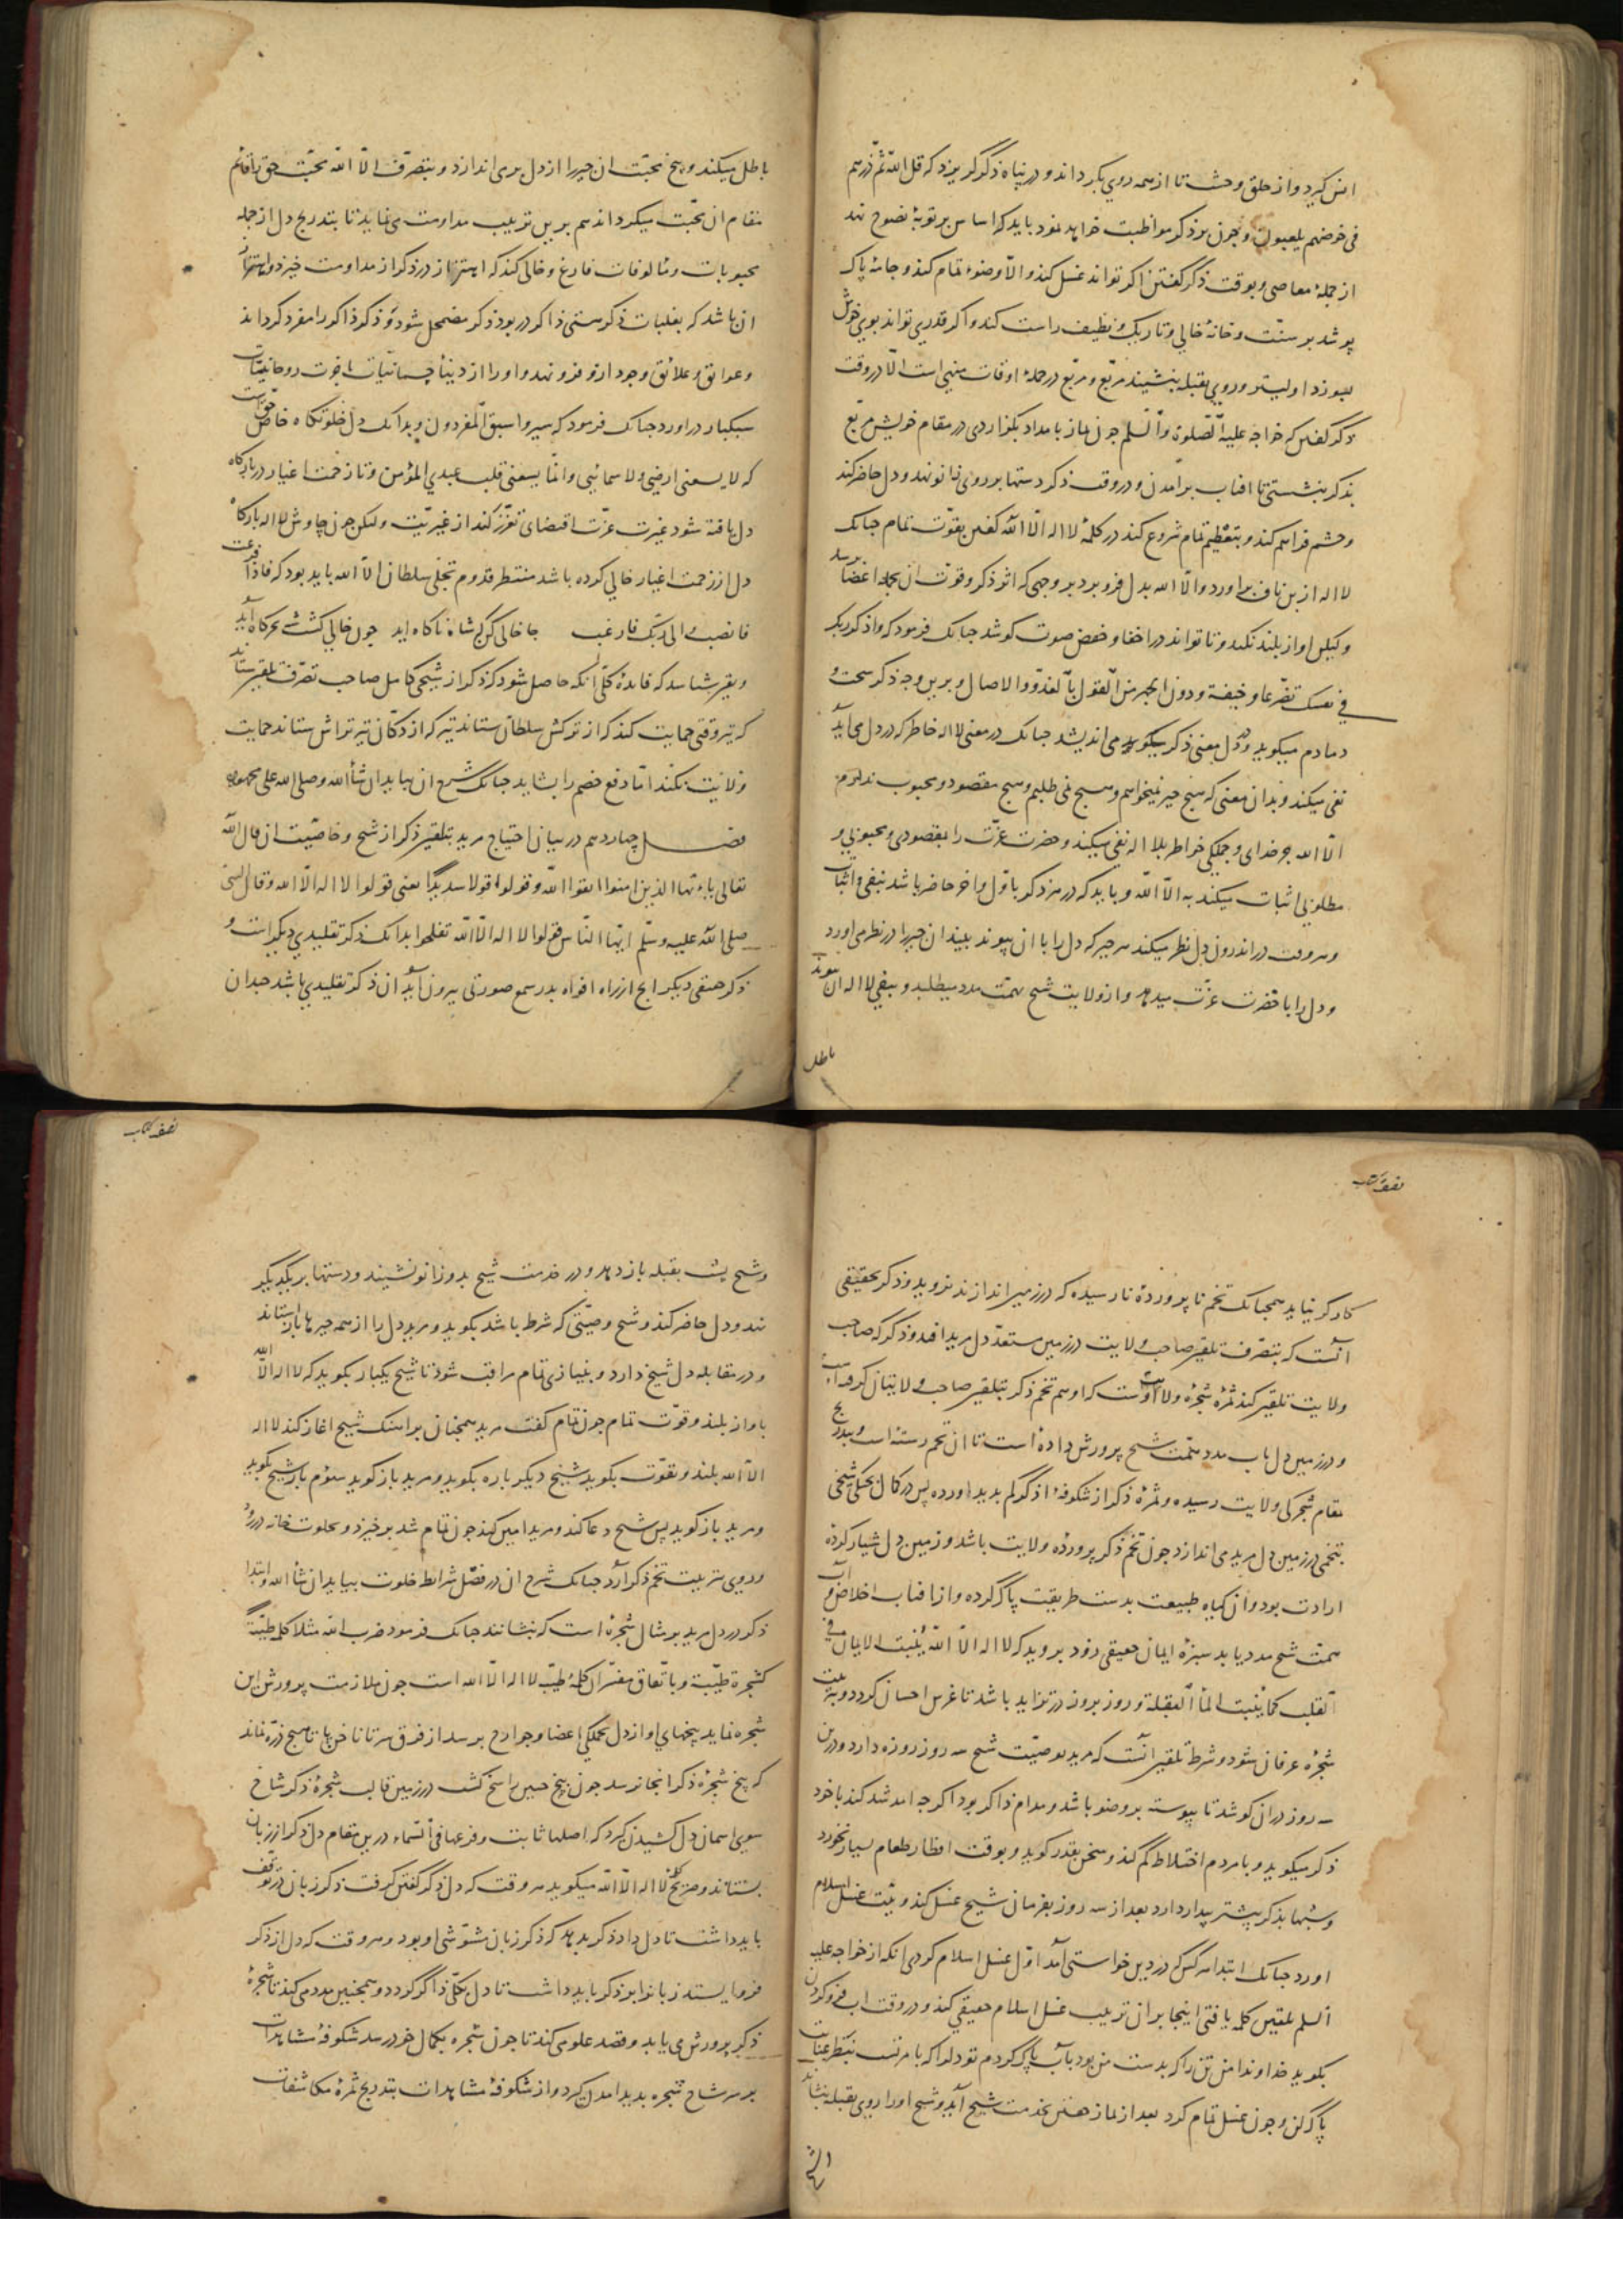 انس گیرد و از خلق وحشت تا از همه روی بگرداند و در پناه ذکر گریزد که قل الله ثم ذرهم
فی خوضهم یلعبون و چون بر ذکر مواظبت خواهد نمود باید که اساس بر توبهٔ نصوح نهد
از جملهٔ معاصی و بوقت ذکر گفتن اگر تواند غسل کند و الّا وضوء تمام کند و جامهٔ پاک
پوشد بر سنّت و خانهٔ خالی و تاریک و نظیف راست کند و اگر قدری تواند بوی خوش
بسوزد اولیتر و روی بقبله بنشیند مربّع و مربّع در جملهٔ اوقات منهی است الّا در وقت
ذکر گفتن که خواجه علیه الصّلوة و السّلم چون نماز بامداد بگزاردی در مقام خویش مربّع
بذکر بنشستی تا افتاب برامدن و در وقت ذکر دستها بر روی زانو نهد و دل حاضر کند
و چشم فراهم کند و بتعظیم تمام شروع کند در کلمهٔ لا اله الّا الله گفتن بقوّت تمام چنانک
لا اله از بن ناف براورد و الّا الله بدل فرو برد بر وجهی که اثر ذکر و قوّت ان بجملهٔ اعضا برسد
ولیکن اواز بلند نکند و تا تواند در اخفا و خفض صوت کوشد چنانک فرمود که واذکر ربک
فی نفسک تضرّعا و خیفة و دون الجهر من القول بالغدوّ و الاصال و برین وجه ذکر سخت و
دمادم میگوید و در دل معنی ذکر میگوید و می اندیشد چنانک در معنی لا اله خاطر که در دل می آید
نفی میکند و بدان معنی که هیچ چیز نمیخواهم و هیچ نمی طلبم و هیچ مقصود و محبوب ندارم
الّا الله جز خدای و جملگی خواطر بلا اله نفی میکند و حضرت عزّت را بمقصودی و محبوبی و
مطلوبی اثبات میکند به الّا الله و باید که در هر ذکر باوّل و اخر حاضر باشد بنفی و اثبات
و هر وقت در اندرون دل نظر میکند هر چیز که دل را با ان پیوند بیند ان چیز را در نظر می اورد
و دل را با حضرت عزّت میدهد و از ولایت شیخ بهمّت مدد میطلبد و بنفی لا اله ان پیوند
باطل
باطل میکند و بیخ محبّت ان چیز را از دل برمی اندازد و بتصرّف الّا الله محبّت حق را قائم
مقام ان محبّت میگرداند هم برین ترتیب مداومت می نماید تا بتدریج دل از جمله
محبوبات و مالوفات فارغ و خالی کند که اهتزاز در ذکر از مداومت خیزد و اهتزاز
ان باشد که بغلبات ذکر هستی ذاکر در بود ذکر مضمحل شود و ذکر ذاکر را مفرد گرداند
و عوایق و علائق وجود از و فرو نهد و او را از دنیاء جسمانیات باخرت روحانیّات
سبکبار دراورد چنانک فرمود که سیروا سبق المفردون و بدانک دل خلوتگاه خاصّ حق است
که لا یسعنی ارضی و لا سمائی و انّما یسعنی قلب عبدی المؤمن و تا زحمت اغیار در بارگاه
دل یافته شود غیرت عزّت اقتضای تعزّز کند از غیریّت ولیکن چون چاوش لا اله بارگاه
دل از زحمت اغیار خالی کرده باشد منتظر قدوم تجلی سلطان الّا الله باید بود که فاذا فرغت
فانصب و الی ربّک فارغب جا خالی کن که شاه ناکاه اید چون خالی گشت شه بخرگاه آید
و بقیر شناسد که فایدهٔ کلّی آنکه حاصل شود که ذکر از شیخی کامل صاحب تصرّف تلقین ستاند
که تیر وقتی حمایت کند که از ترکش سلطان ستاند تیر که از دکّان تیرتراش ستاند حمایت
ولایت نکند امّا دفع خصم را بشاید چنانک شرح ان بیاید ان شاء الله و صلی الله علی محمد و اله
فصل چهاردهم در بیان احتیاج مرید بتلقین ذکر از شیخ و خاصّیت ان قال الله
تعالی یا ایّها الذین امنوا اتقوا الله و قولوا قولا سدیدًا یعنی قولوا لا اله الّا الله و قال النبی
صلی الله علیه و سلّم ایّها النّاس قولوا لا اله الّا الله تفلحوا بدانک ذکر تقلیدی دیگر است و
ذکر حقیقی دیگر انچ از راه افواه بدر سمع صورتی بیرون آید ان ذکر تقلیدی باشد چندان
نصف کتاب
نصف کتاب
کارگر نیاید همچنانک تخم ناپروردهٔ نارسیده که در زمین اندازند نروید و ذکر تحقیقی
آنست که بتصرّف تلقین صاحب ولایت در زمین مستعدّ دل مرید افتد و ذکر که صاحب
ولایت تلقین کند ثمرهٔ شجرهٔ ولایت اوست که او هم تخم ذکر بتلقین صاحب ولایتان گرفته است
و در زمین دل باب مدد همّت شیخ پرورش داده است تا ان تخم رسته است و بتدریج
بمقام شجرگی ولایت رسیده و ثمرهٔ ذکر از شکوفهٔ اذکرکم بدید اورده پس در کمال پختگی شیخی
تخمی در زمین دل مرید می اندازد چون تخم ذکر پروردهٔ ولایت باشد و زمین دل شیار کردهٔ
ارادت بود و ان گیاه طبیعت بدست طریقت پاک کرده و از افتاب اخلاص و آب
همّت شیخ مدد یابد سبزهٔ ایمان حقیقی زود بروید که لا اله الّا الله یُنبت الایمان فی
القلب کما یُنبت الماء البقلة و روز بروز در تزاید باشد تا غرس احسان گردد و بتربیت
شجرهٔ عرفان شود و شرط تلقین آنست که مرید بوصیّت شیخ سه روز روزه دارد و درین
سه روز دران کوشد تا پیوسته بر وضو باشد و مدام ذاکر بود اگرچه امد شد کند با خود
ذکر میگوید و با مردم اختلاط کم کند و سخن بقدر گوید و بوقت افطار طعام بسیار نخورد
و شبها بذکر بیشتر بیدار دارد بعد از سه روز بفرمان شیخ غسل کند و نیّت غسل اسلام
اورد چنانک ابتدا هر کس که در دین خواستی آمد اوّل غسل اسلام کردی انکه از خواجه علیه
السلم تلقین کلمه یافتی اینجا بران ترتیب غسل اسلام حقیقی کند و در وقت اب فرو کردن
بگوید خداوندا من تن را که بدست من بود بآب پاک کردم تو دل را که بامر تست بنظر عنایت
پاک کن و چون غسل تمام کرد بعد از نماز خفتن بخدمت شیخ آید و شیخ او را روی بقبله بنشاند
و شیخ پشت بقبله باز دهد و در خدمت شیخ بدو زانو نشیند و دستها بر یکدیگر
نهد و دل حاضر کند و شیخ وصیّتی که شرط باشد بگوید و مرید دل را از همه چیزها باز ستاند
و در مقابلهٔ دل شیخ دارد و بنیازی تمام مراقب شود تا شیخ یکبار بگوید که لا اله الّا الله
باواز بلند و قوّت تمام چون تمام گفت مرید همچنان بر اهنگ شیخ اغاز کند لا اله
الّا الله بلند و بقوّت بگوید شیخ دیگر باره بگوید و مرید باز گوید سوّم بار شیخ بگوید
و مرید باز گوید پس شیخ دعا کند و مرید امین کند چون تمام شد برخیزد و بخلوت خانه در رود
و روی بتربیت تخم ذکر آرد چنانک شرح ان در فصل شرایط خلوت بیاید ان شاء الله و ابتدا
ذکر در دل مرید بر مثال شجرهٔ است که بنشانند چنانک فرمود ضرب الله مثلا کلمة طیّبة
کشجرة طیّبة و باتّفاق مفسّران کلمهٔ طیّب لا اله الّا الله است چون ملازمت پرورش این
شجره نماید بیخهای او از دل بجملگی اعضا و جوارح برسد از فرق سر تا ناخن پا تا هیچ ذرّه نماند
که بیخ شجرهٔ ذکر انجا نرسد چون بیخ چنین راسخ گشت در زمین قالب شجرهٔ ذکر شاخ
سوی اسمان دل کشیدن گیرد که اصلها ثابت و فرعها فی السّماء درین مقام دل ذکر از زبان
بستاند و صریح کلمهٔ لا اله الّا الله میگوید هر وقت که دل ذکر گفتن گرفت ذکر زبان در توقّف
باید داشت تا دل داد ذکر بدهد که ذکر زبان مشوّشی او بود و هر وقت که دل از ذکر
فرو ایستد زبانرا بر ذکر باید داشت تا دل بکلّی ذاکر گردد و همچنین مدد می کند تا شجرهٔ
ذکر پرورش می یابد و قصد علوّ می کند تا چون شجره بکمال خود رسد شکوفهٔ مشاهدات
بر سر شاخ شجره بدید امدن گیرد و از شکوفهٔ مشاهدات بتدریج ثمرهٔ مکاشفات